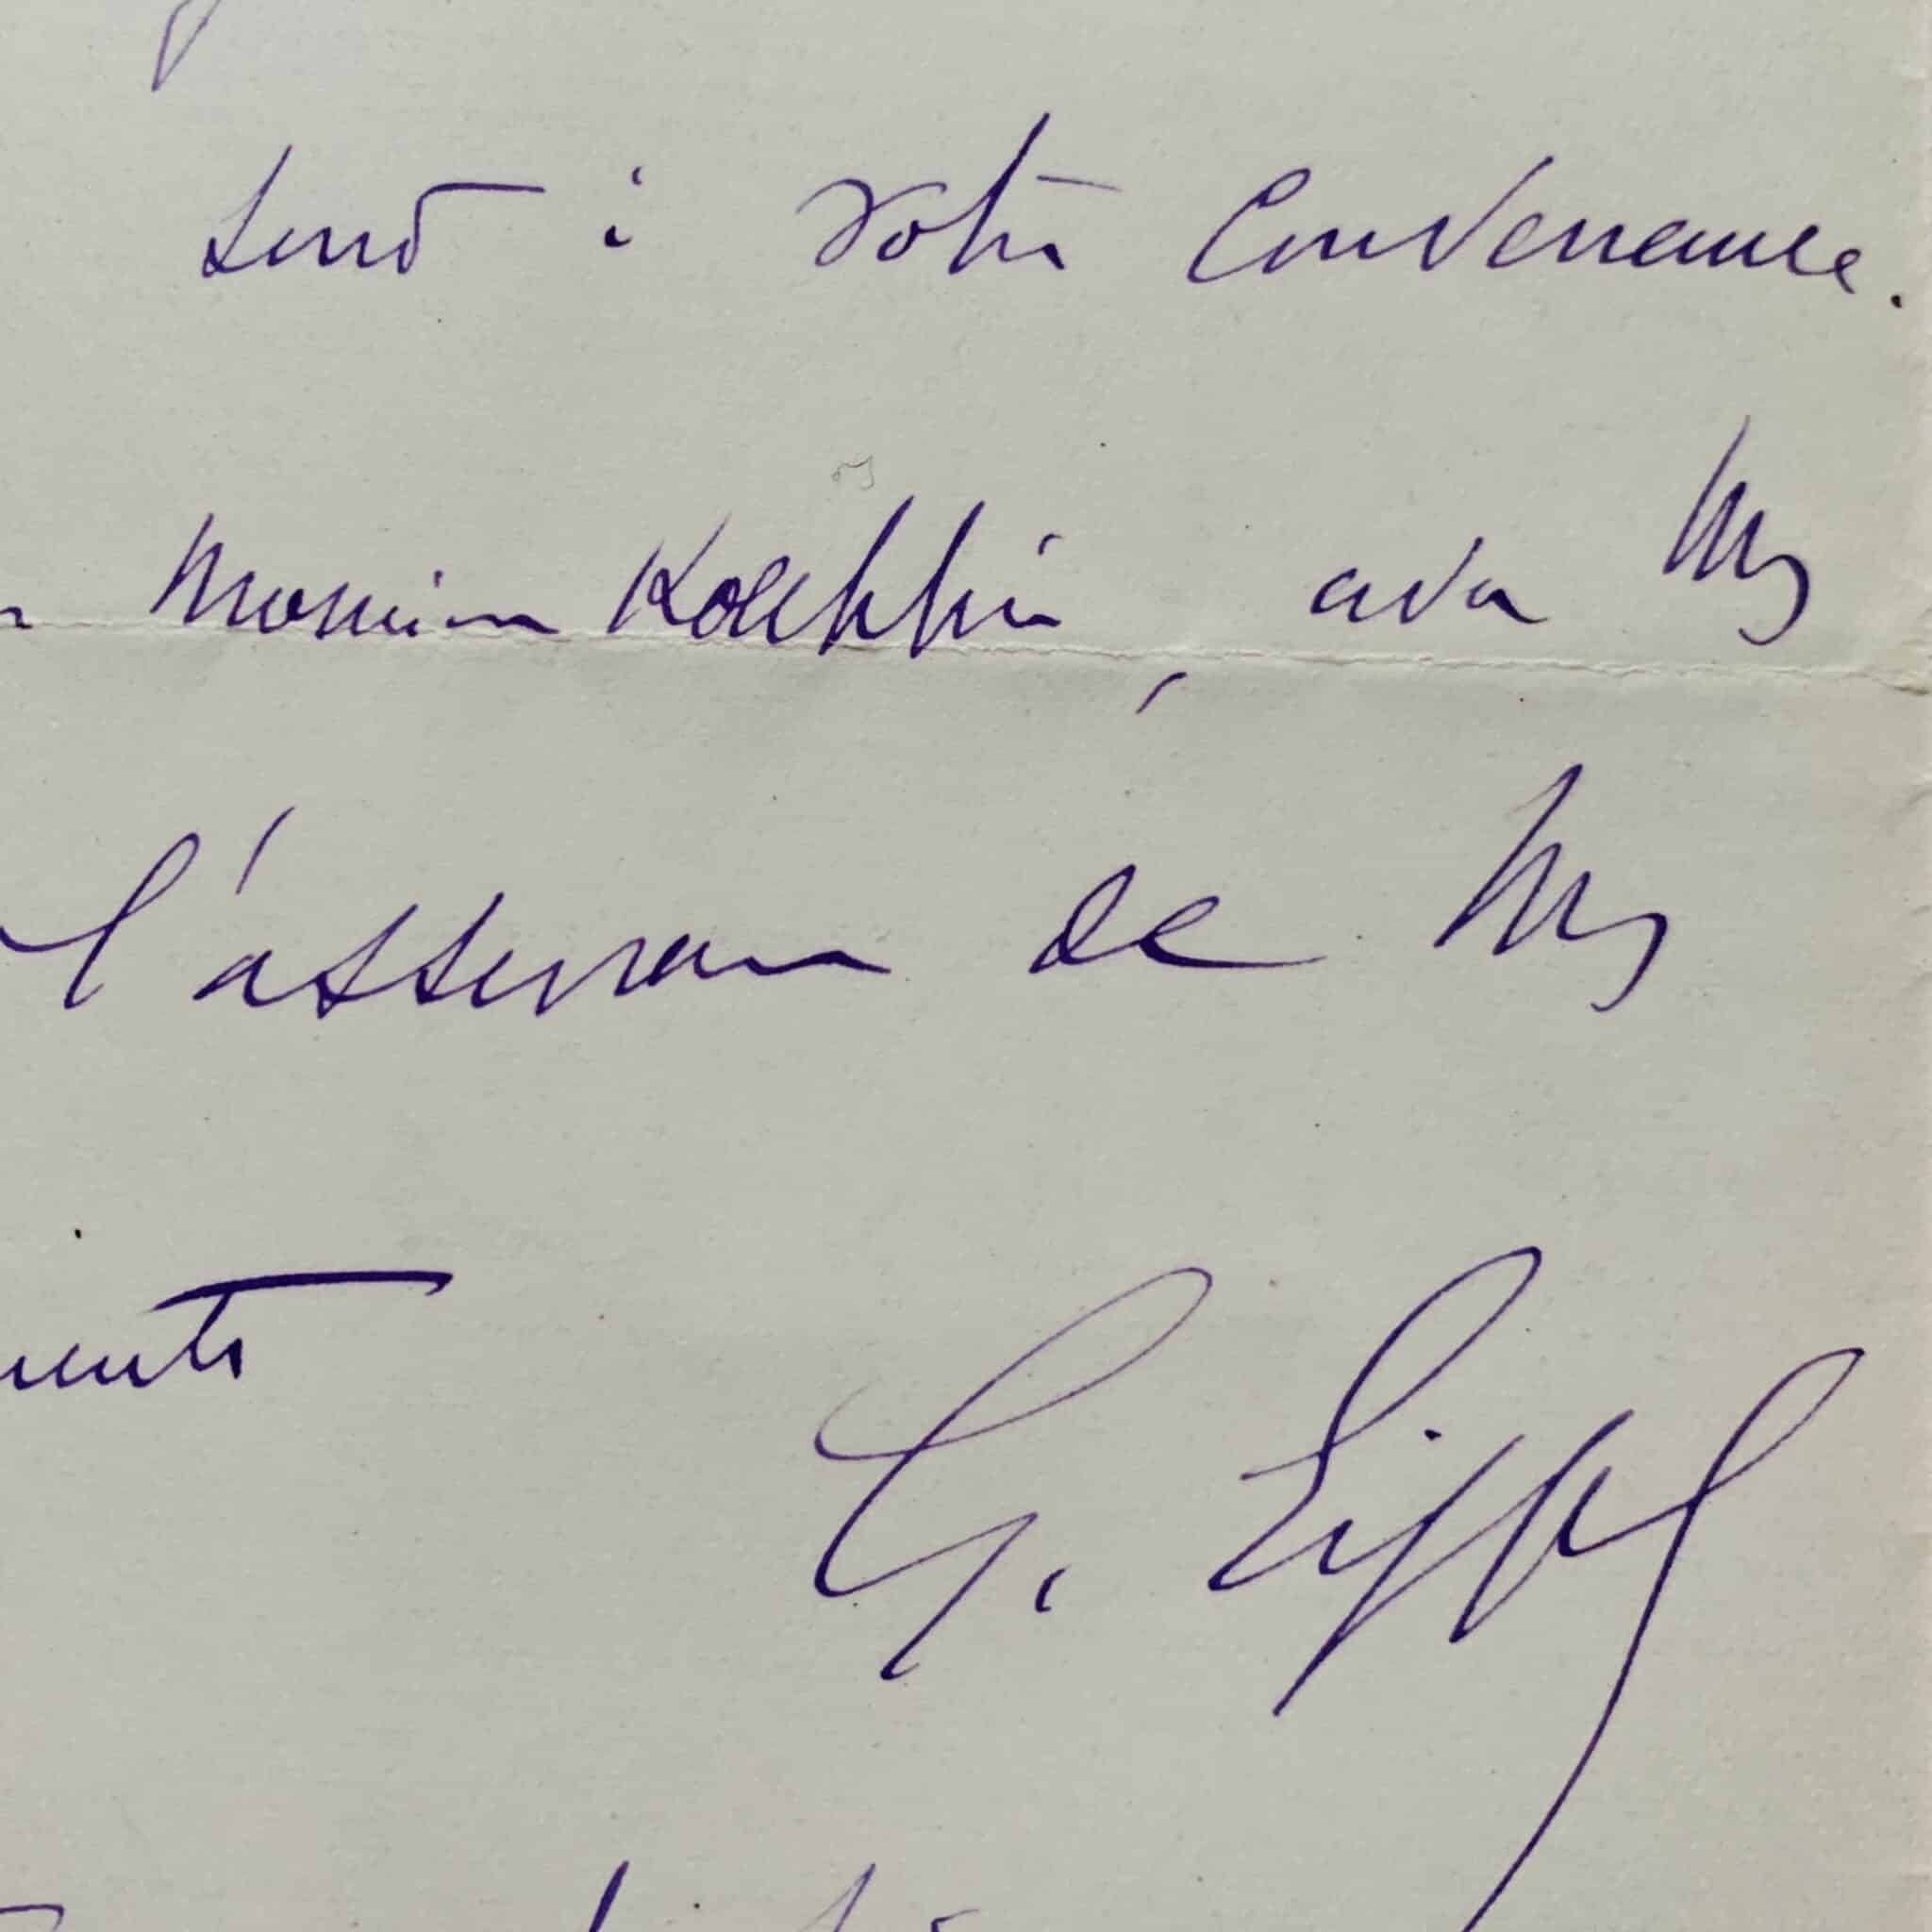 sera à votre convenance.
Monsieur Koechlin, avec mes
l'assurance de mes
ments
G. Eiffel